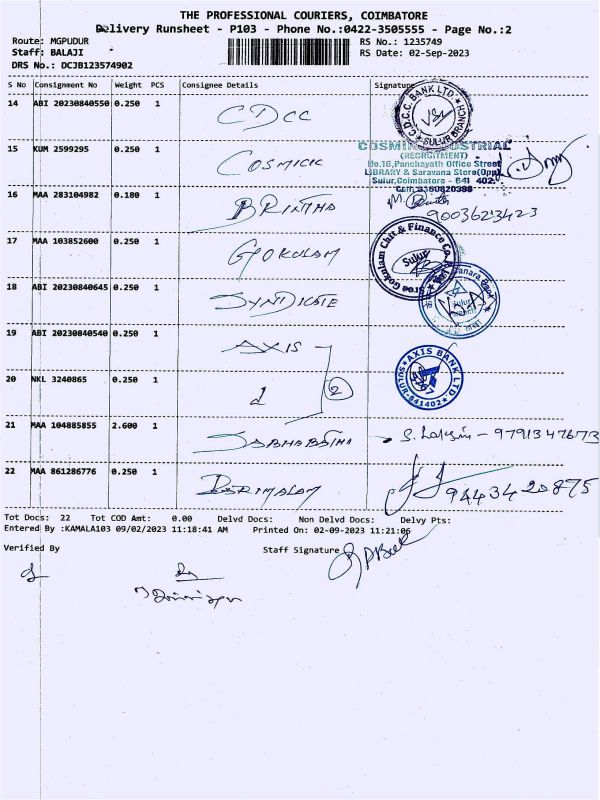 THE PROFESSIONAL COURIERS, COIMBATORE
Delivery Runsheet - P103 - Phone No.:0422-3505555 - Page No.:2
Route: MGPUDUR
RS No.: 1235749
Staff: BALAJI
RS Date: 02-Sep-2023
DRS No.: DCJB123574902
S No Consignment No Weight PCS Consignee Details Signature
14 ABI 20230840550 0.250 1 CDCC
C.D.C.C. BANK LTD. SULUR BRANCH
15 KUM 2599295 0.250 1 COSMICIC
COSMIN INDUSTRIAL
(RECRUITMENT)
No.16,Panchayath Office Street
LIBRARY & Saravana Store(Opp)
Sulur,Coimbatore - 641 402.
Cell: 8360820398
16 MAA 283104982 0.180 1 BRINTHA
9003623423
17 MAA 103852600 0.250 1 GOKULAM
Sree Gokulam Chit & Finance Co. Sulur
18 ABI 20230840645 0.250 1 SYNDICATE
Canara Bank Sulur
19 ABI 20230840540 0.250 1 AXIS
20 NKL 3240865 0.250 1 2
AXIS BANK LTD SULUR-641402
21 MAA 104885855 2.600 1
S. - 9791347673
22 MAA 861286776 0.250 1
9443420875
Tot Docs: 22 Tot COD Amt: 0.00 Delvd Docs: Non Delvd Docs: Delvy Pts:
Entered By :KAMALA103 09/02/2023 11:18:41 AM Printed On: 02-09-2023 11:21:06
Verified By Staff Signature